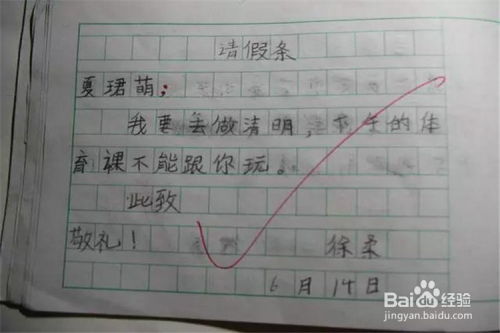 请假条
夏珺萌：
我要去做清明，下午的体
育课不能跟你玩。
此致
敬礼！
徐柔
6月14日
Baidu经验
jingyan.baidu.com